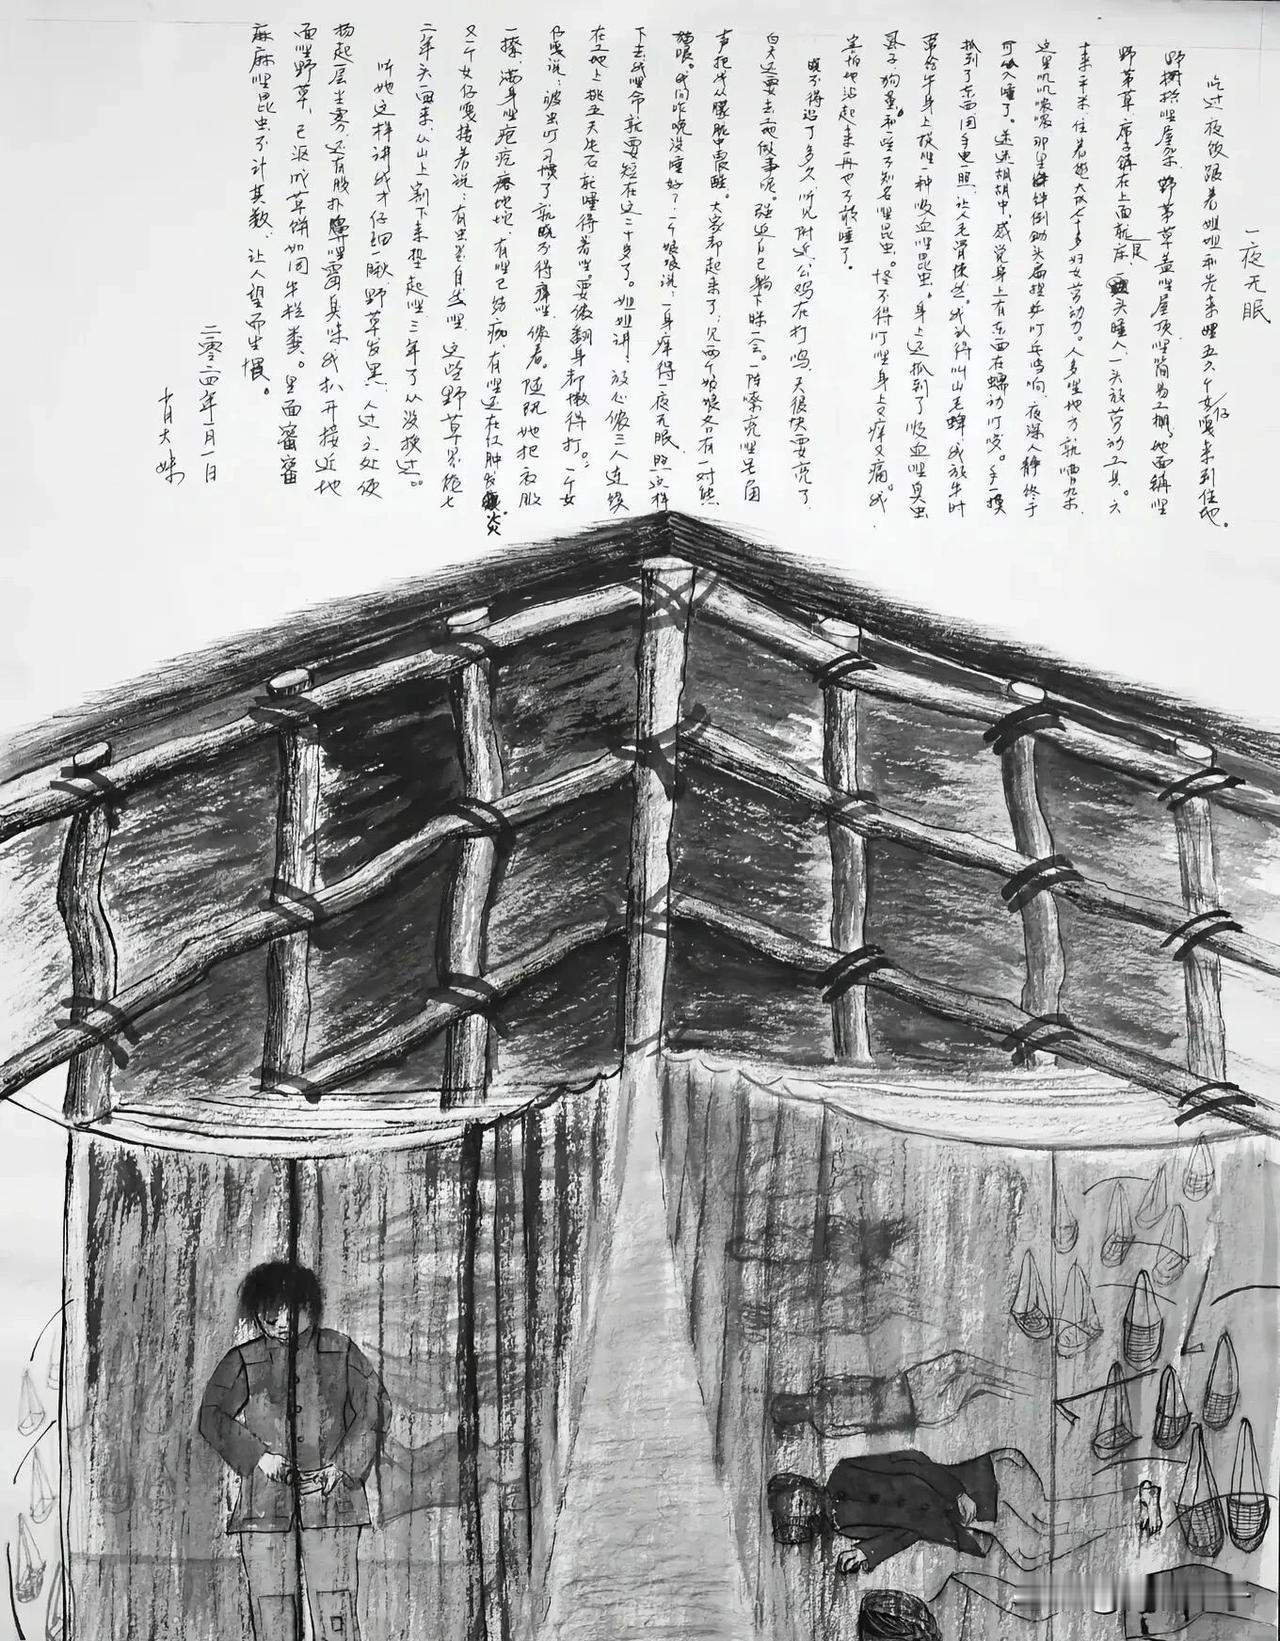 一夜无眠
吃过夜饭跟着姐姐和先来哩五六个女仔嘎来到住地。
野树搭哩屋架，野茅草盖哩屋顶，哩简易工棚，地面铺哩
野茅草，席子铺在上面就是床，一头睡人，一头放劳动工具。六
十来平米，住着趟大伙七十多妇女劳动力。人多哩地方就嘈杂，
这里叽叽喳喳，那里锄头扁担乒叮乓当响，夜深人静终于
可以入睡了。迷迷糊糊中，感觉身上有东西在蠕动叮咬。手一摸
抓到了东西，用手电一照，让人毛骨悚然。我认得叫山毛蜱，我放牛时
常给牛身上摸哩一种吸血哩昆虫。身上还抓到了吸血哩臭虫
虱子，狗蚤。和一些不知名哩昆虫。怪不得叮哩身上又痒又痛。我
害怕地站起来再也不敢睡了。
晓不得过了多久，听见附近公鸡在打鸣，天很快要亮了，
白天还要去工地做事呢。强迫自己躺下眯一会。一阵嘹亮哩号角
声把我从朦胧中震醒。大家都起来了，见两个娘娘各有一对熊
猫眼。我问昨晚没睡好？一个娘娘说：一身痒得一夜无眠，照这样
下去我哩命就要短在这二十多了。姐姐讲：放心做三人连续
在工地上挑五天先石就睡得着哩。要做翻身都懒得打。一个女
仔嘎说：被虫叮习惯了就晓不得痒哩，做着。随既她把衣服
一撩，满身哩疤疙瘩地坨，有哩已结痂，有哩还在红肿发炎。
又一个女仔嘎接着说：有虫虽自然哩，这些野草界植七
二年头一面来，从山上割下来垫起哩，三年了从没换过。
听她这样讲我才仔细一瞅，野草发黑，人过之处便
扬起一层尘雾，还有股扑鼻哩霉臭味，我扒开接近地
面哩野草，已沤成草饼如同牛栏粪。里面密密
麻麻哩昆虫不计其数，让人望而生惧。
二零二四年一月一日
肖大妹